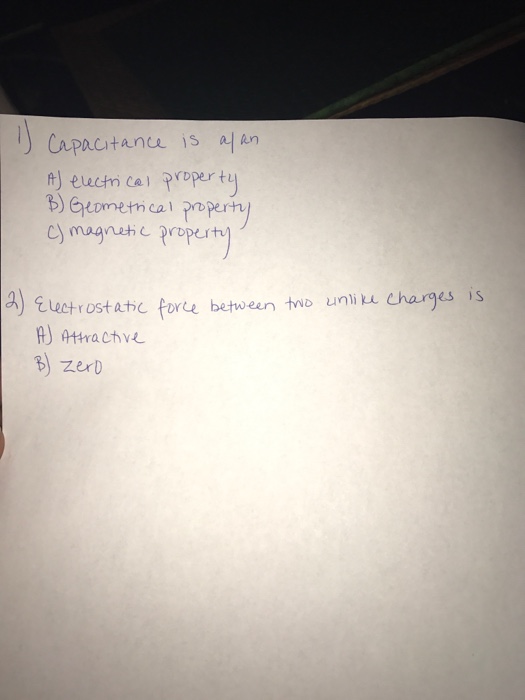 1) Capacitance is a/an
A) electrical property
B) Geometrical property
C) magnetic property
2) Electrostatic force between two unlike charges is
A) Attractive
B) zero